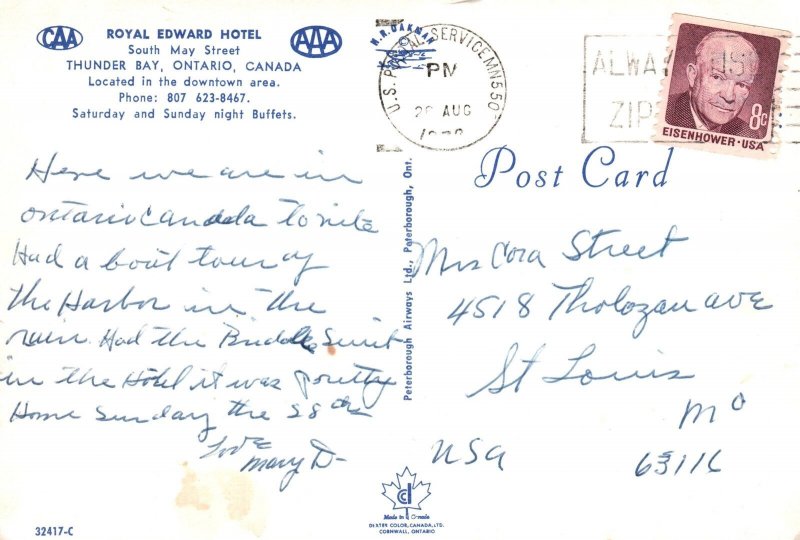 CAA
ROYAL EDWARD HOTEL
South May Street
THUNDER BAY, ONTARIO, CANADA
Located in the downtown area.
Phone: 807 623-8467.
Saturday and Sunday night Buffets.
AAA
Here we are in
ontario canada to nite
Had a boat tour of
the Harbor in the
rain. Had the Bridal Suit
in the Hotel it was pretty
Home Sunday the 28 th
Love
Mary D-
32417-C
Peterborough Airways Ltd., Peterborough, Ont.
N.R. OAKMAN
U.S. POSTAL SERVICE MN 550
PM
AUG
ALWAYS USE
ZIP
8c
EISENHOWER·USA
Post Card
Mrs Cora Street
4518 Tholozan ave
St Louis
Mo
USA
63116
Made in Canada
DEXTER COLOR, CANADA, LTD.
CORNWALL, ONTARIO